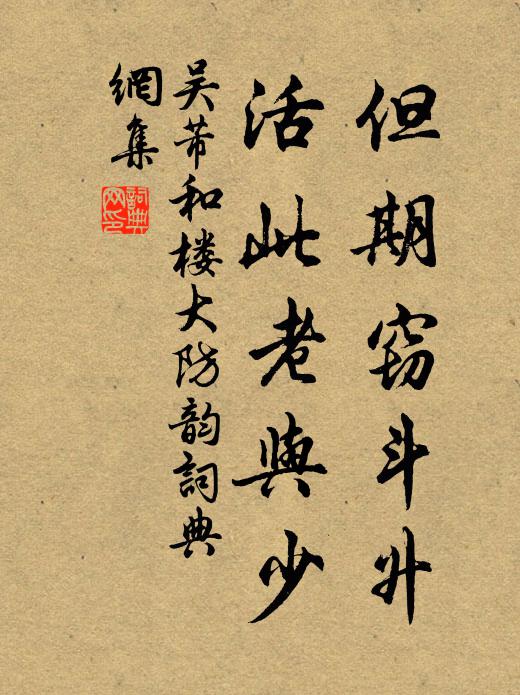 但期窃斗升
活此老與少
吴芾和楼大防韵詞典
網集
詞典
网印